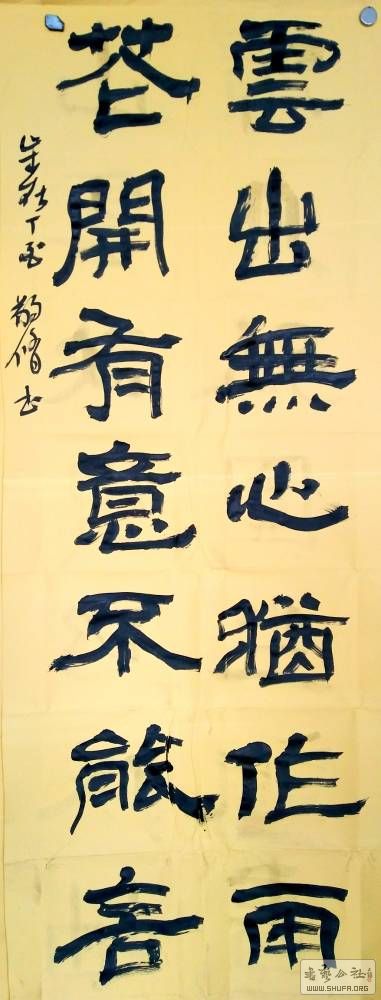 雲出無心猶作雨
花開有意不能言
歲在丁酉 书
书艺公社
WWW.SHUFA.ORG